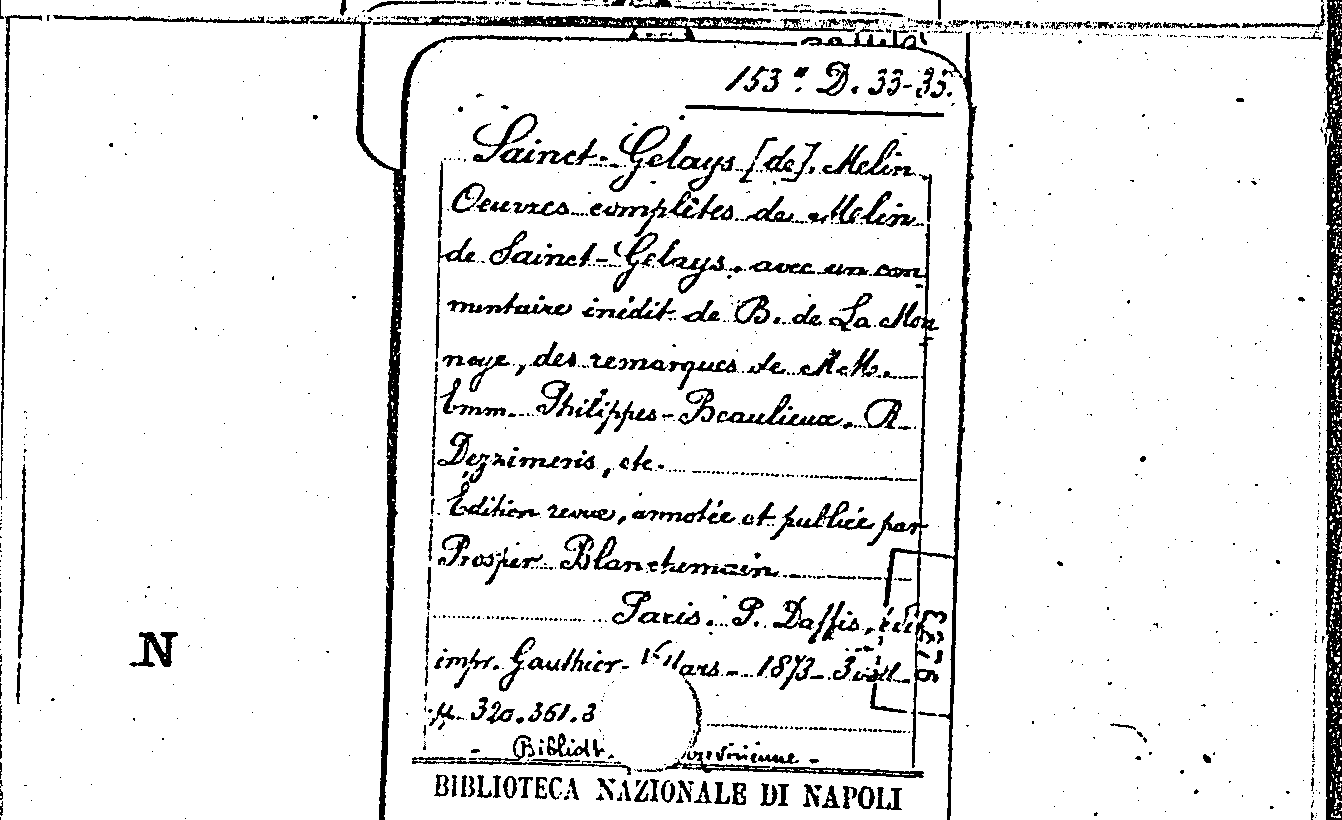 153ª D. 33-35.
Sainct-Gelays [de]. Melin
Oeuvres complètes de Melin
de Sainct-Gelays. avec un com
mentaire inédit de B. de La Mon
noye, des remarques de MM.
Emm. Philippes-Beaulieux. R
Dezzimeris, etc.
Édition revue, annotée et publiée par
Prosper Blanchemain
Paris. P. Daffis, édit
impr. Gauthier-Villars - 1873 - 3 voll
320. 361. 3
BIBLIOTECA NAZIONALE DI NAPOLI
N